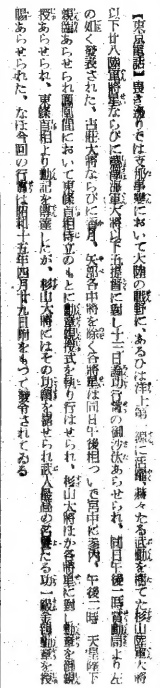 【東京電話】畏き邊りでは支那事變において大陸の曠野に、あるひは洋上第一線に活躍、赫々たる武勳を樹てた杉山陸軍大將
以下廿八陸軍將星ならびに海軍大將以下五提督に對し十三日論功行賞の御沙汰あらせられ、同日午後一時賞勳局より左
の如く發表された、古莊大將ならびに香月、矢部各中將を除く各將星は同日午後相ついで宮中に參內、午後二時 天皇陛下
親臨あらせられ鳳凰間において東條首相侍立のもとに勳章親授式を執り行はせられ、杉山大將ほか各將星に對し勳章を御親
授あらせられ、東條首相より勳記を傳達したが、杉山大將にはその功績を嘉せられ武人最高の名譽たる功一級金鵄勳章を授
賜あらせられた、なほ今回の行賞は昭和十五年四月廿九日附をもつて發令されてゐる